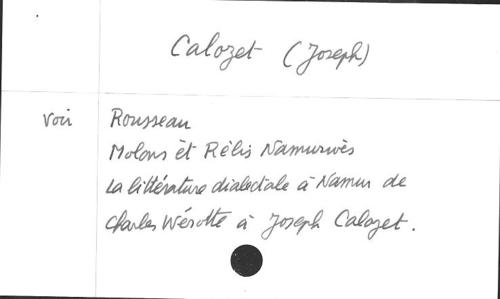 Calozet (Joseph)
voir Rousseau
Molons èt Rèlis Namurwès
La littérature dialectale à Namur de
Charles Wérotte à Joseph Calozet.